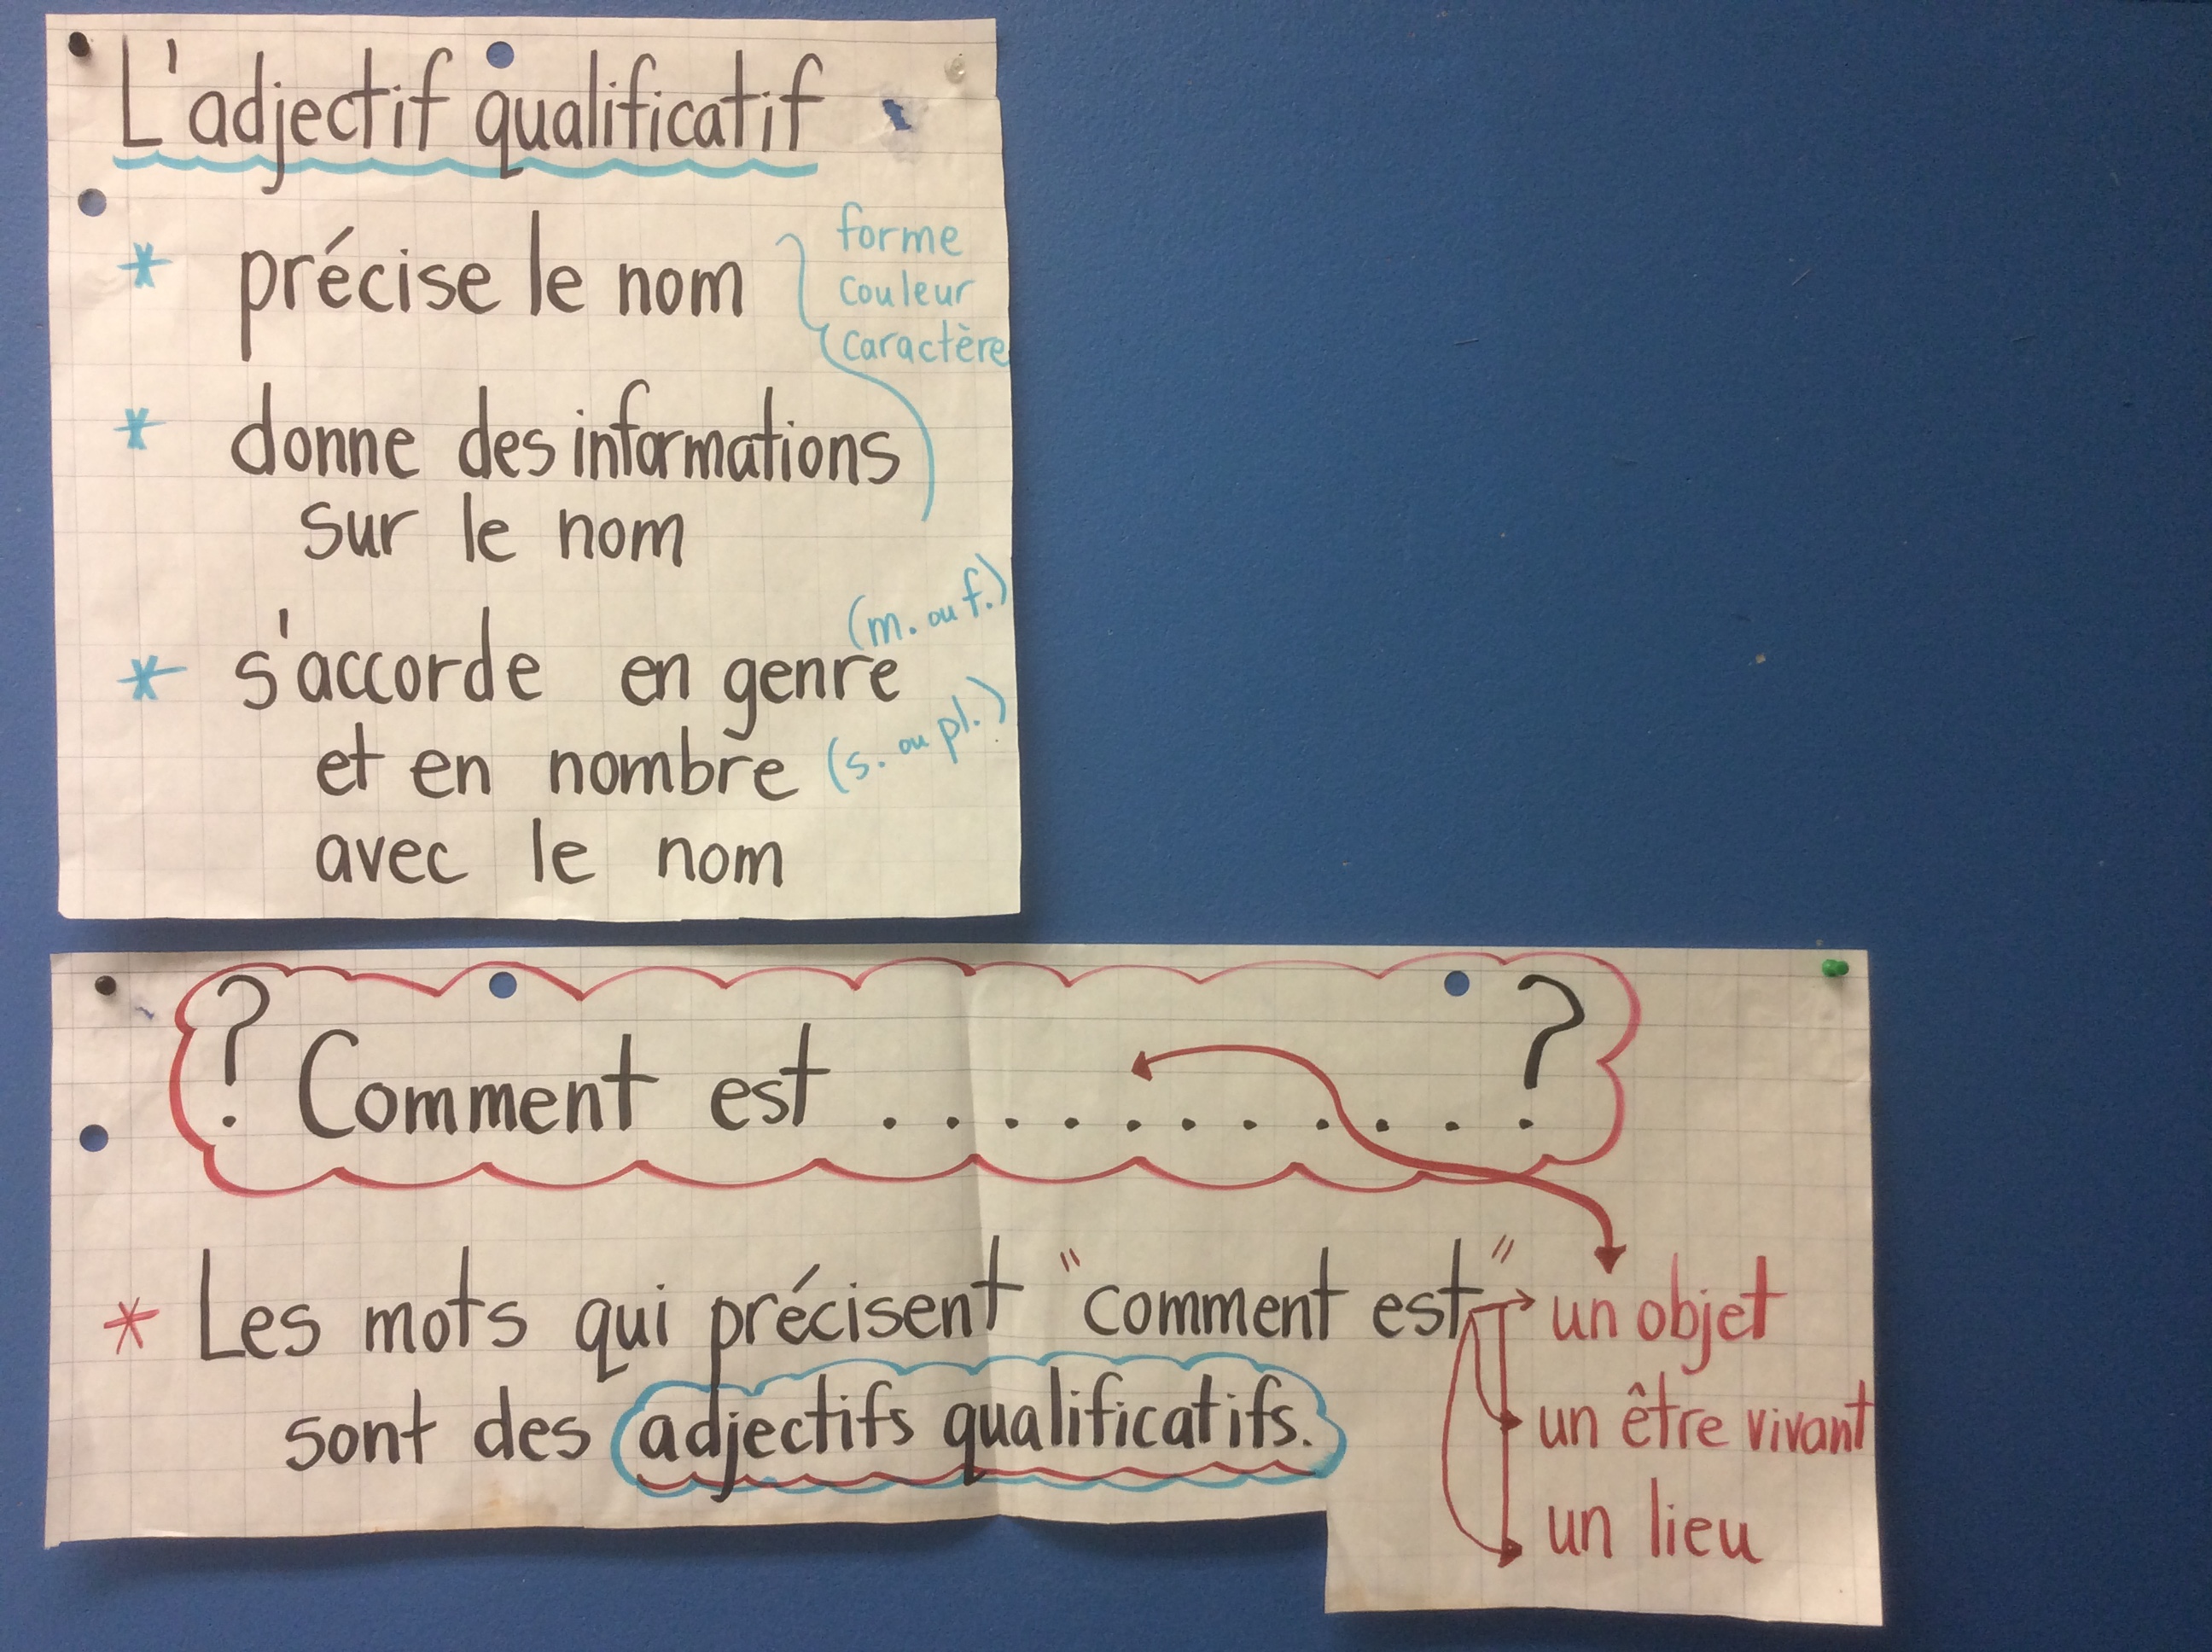 L'adjectif qualificatif
* précise le nom
forme
couleur
caractère
* donne des informations
sur le nom
* s'accorde en genre (m. ou f.)
et en nombre (s. ou pl.)
avec le nom
? Comment est ............ ?
* Les mots qui précisent "comment est" → un objet
un être vivant
un lieu
sont des adjectifs qualificatifs.